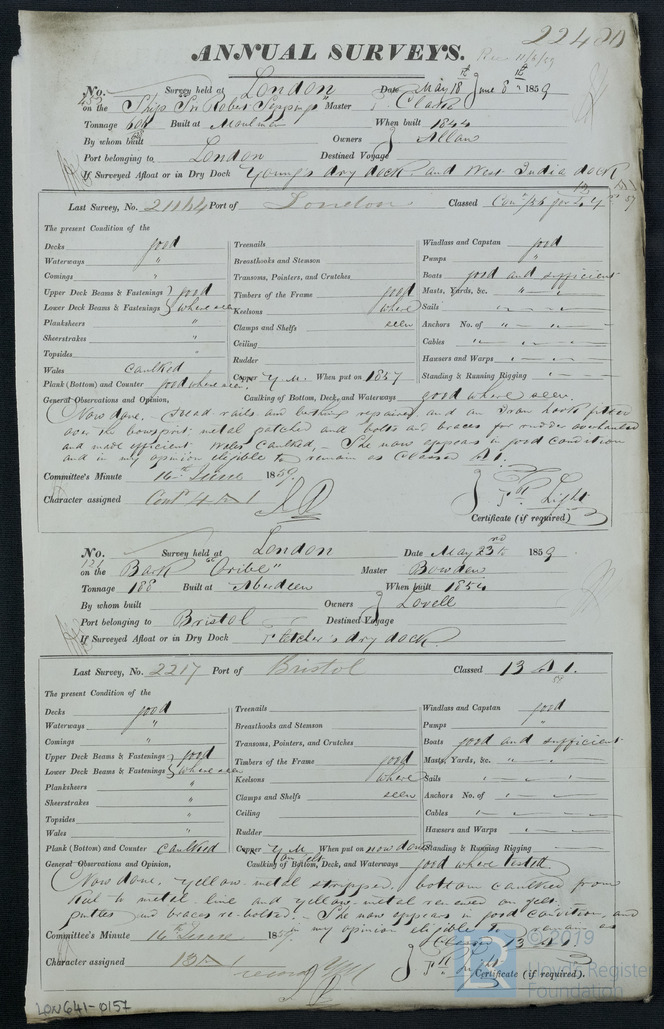 22400
ANNUAL SURVEYS. Rec 11/6/59
No. Survey held at London Date May 18th June 8th 1859
on the Ship Sir Robert Seppings Master Clark
Tonnage 604 Built at Moulmein When built 1844
By whom built Owners Allan
Port belonging to London Destined Voyage
If Surveyed Afloat or in Dry Dock Young's dry dock and West India dock
Last Survey, No. 21144 Port of London Classed
The present Condition of the
Decks good Treenails Windlass and Capstan good
Waterways " Breasthooks and Stemson Pumps "
Comings " Transoms, Pointers, and Crutches Boats good and sufficient
Upper Deck Beams & Fastenings good Timbers of the Frame good Masts, Yards, &c. "
Lower Deck Beams & Fastenings where seen Keelsons where Sails
Planksheers " Clamps and Shelfs seen Anchors No. of "
Sheerstrakes " Ceiling Cables "
Topsides " Rudder Hawsers and Warps
Wales caulked Copper Y.M. When put on 1857 Standing & Running Rigging
Plank (Bottom) and Counter good where seen.
General Observations and Opinion, Caulking of Bottom, Deck, and Waterways good where seen.
Now done. Head rails and repaired, and an Iron fitted
over the bowsprit, metal patched and bolts and braces for rudder overhauled
and made efficient Wales caulked, She now appears in good condition
and in my opinion eligible to remain as Classed
Committee's Minute 14th June 1859.
Character assigned Cont 4 1
Light
Certificate (if required)
No. Survey held at London Date May 23rd 1859
on the Bark "Oribe" Master Bowden
Tonnage 188 Built at Aberdeen When built 1854
By whom built Owners Lovell
Port belonging to Bristol Destined Voyage
If Surveyed Afloat or in Dry Dock Fletcher's dry dock.
Last Survey, No. 2217 Port of Bristol Classed 13 A 1.
The present Condition of the
Decks good Treenails Windlass and Capstan good
Waterways " Breasthooks and Stemson Pumps "
Comings " Transoms, Pointers, and Crutches Boats good and sufficient
Upper Deck Beams & Fastenings good Timbers of the Frame good Masts, Yards, &c.
Lower Deck Beams & Fastenings where seen Keelsons where Sails
Planksheers " Clamps and Shelfs seen Anchors No. of
Sheerstrakes " Ceiling Cables
Topsides " Rudder Hawsers and Warps
Wales " Copper Y.M. on felt When put on now done Standing & Running Rigging
Plank (Bottom) and Counter caulked
General Observations and Opinion, Caulking of Bottom, Deck, and Waterways good where tested
Now done, yellow-metal stripped, bottom caulked from
keel to metal-line and yellow-metal renewed on felt
and braces re-bolted. She now appears in good condition, and
in my opinion eligible to remain as
Classed 13 A 1.
Committee's Minute 14th June 1859.
Character assigned 13 A 1
record YM
Light Certificate (if required).
LR 2019
Lloyd's Register
Foundation
LON641-0157